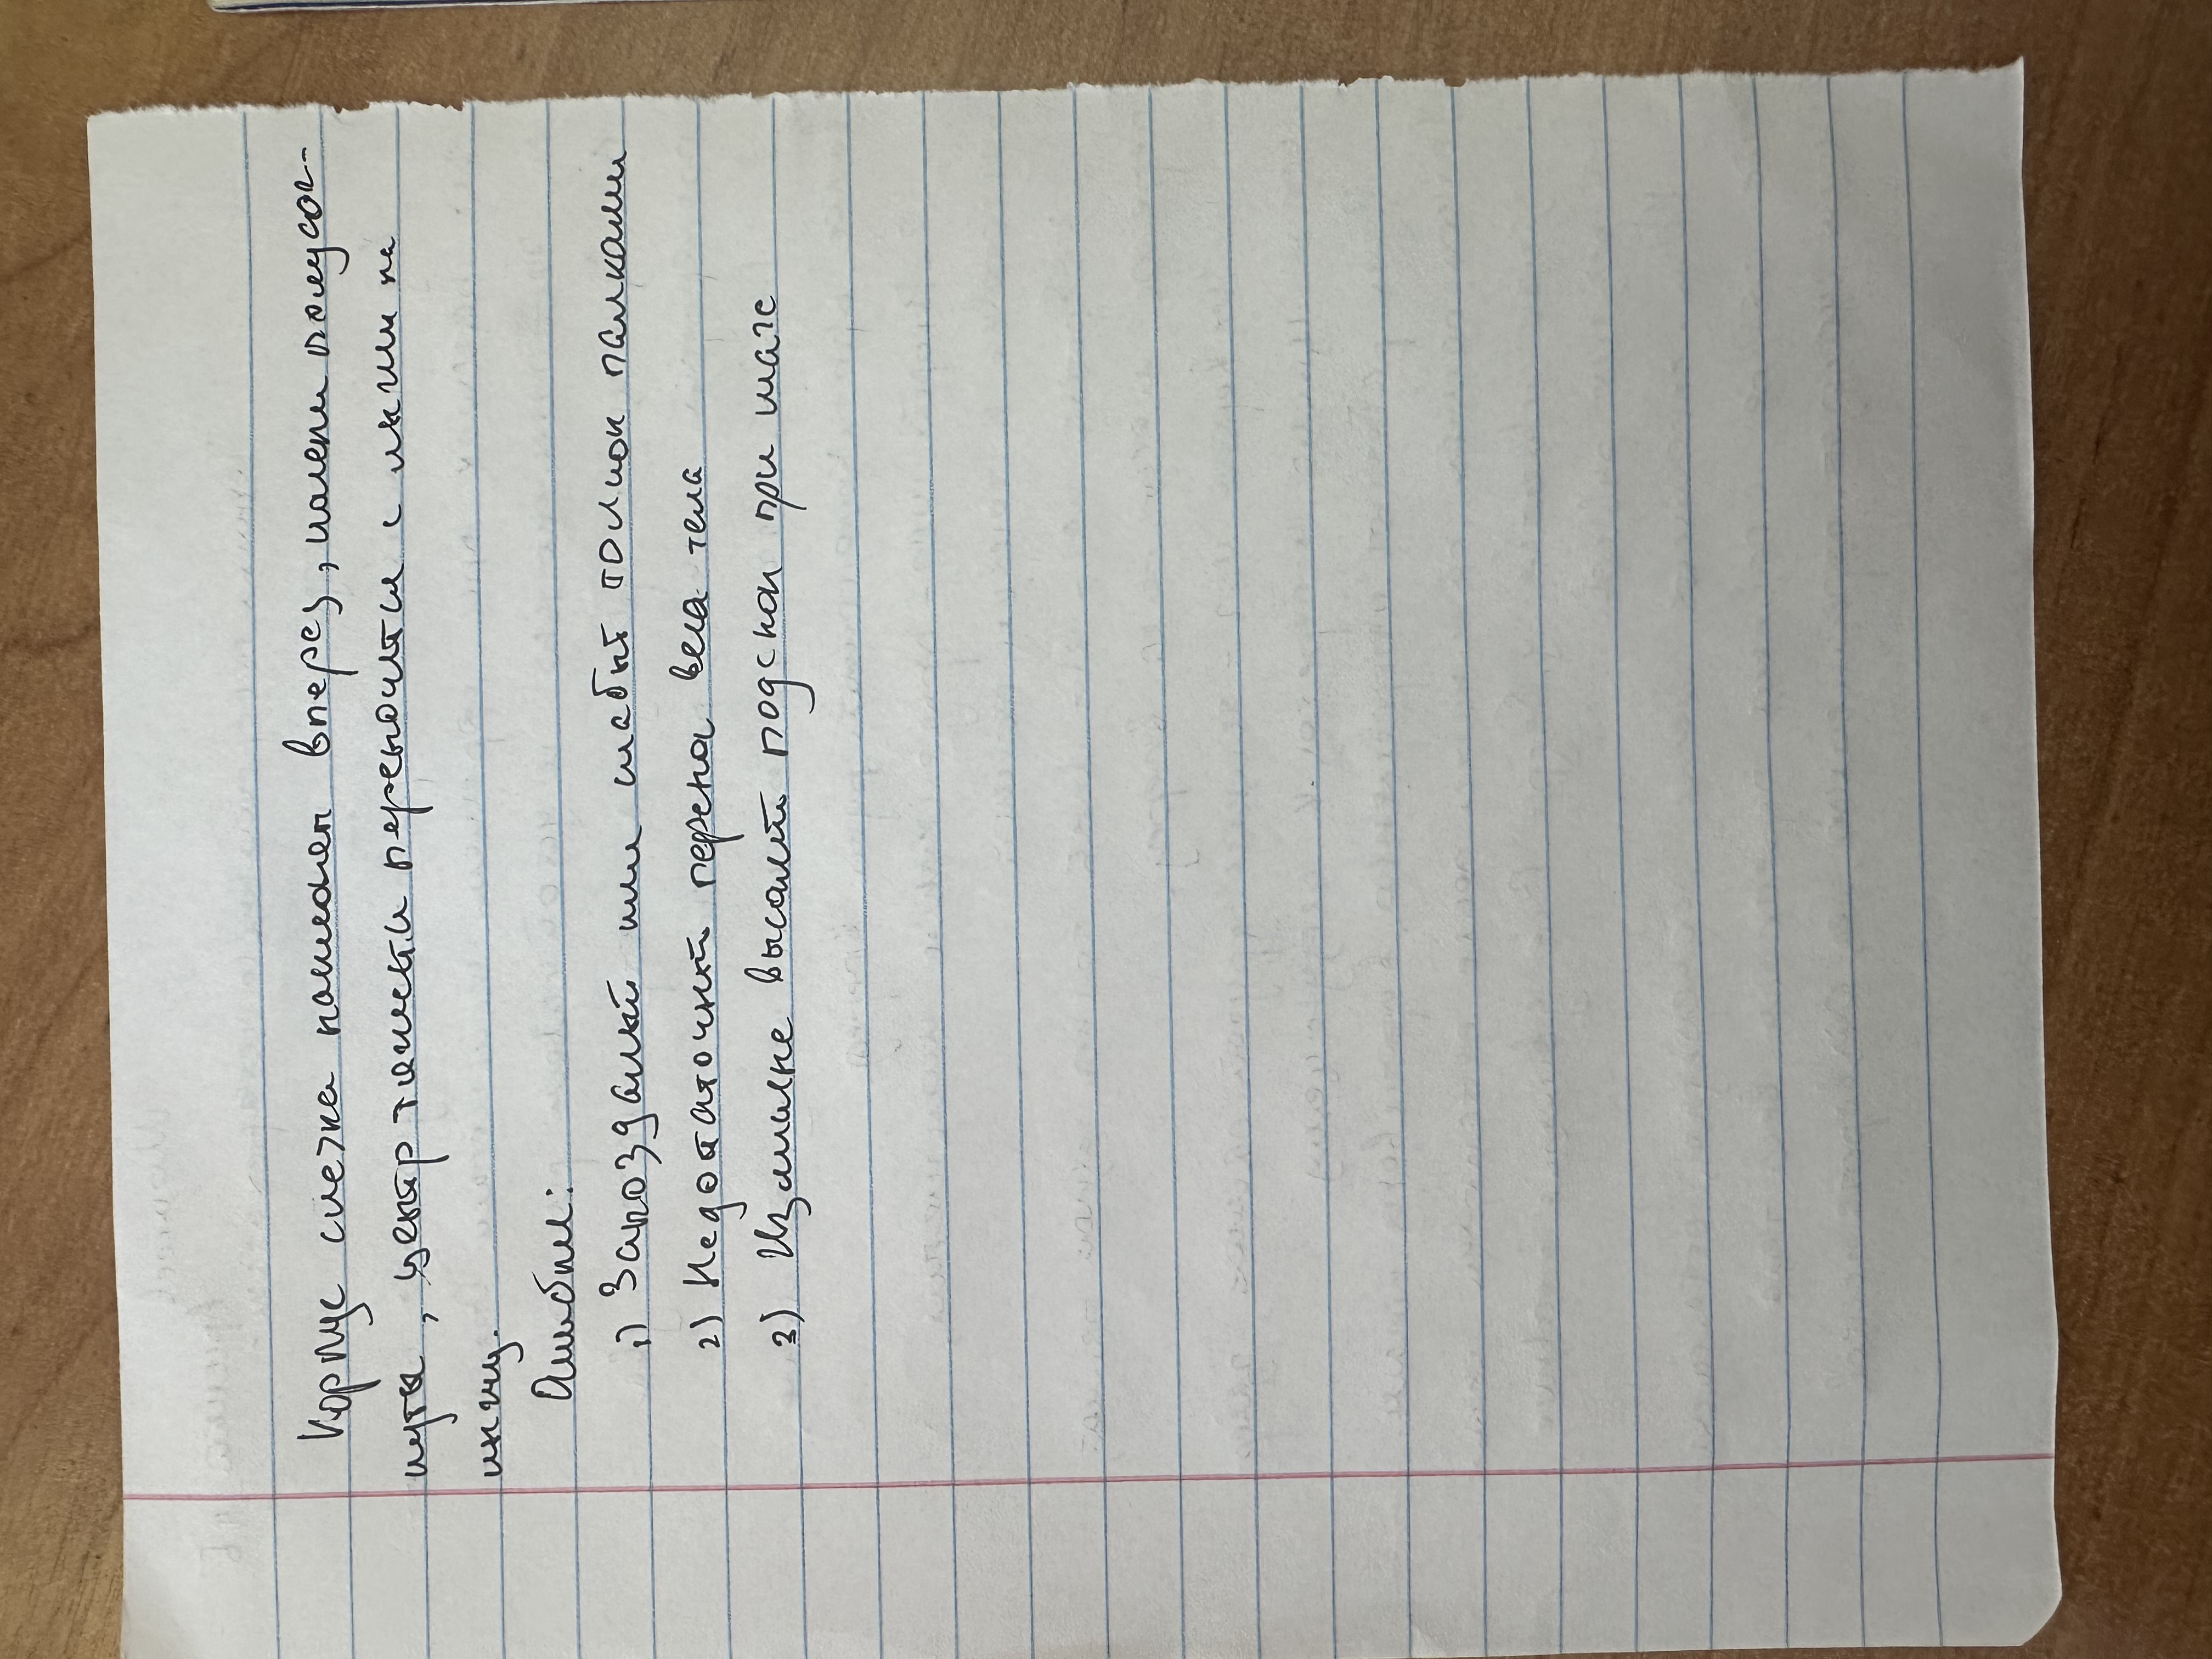 Корпус слегка наклонен вперед, колени полусог-
нуты, центр тяжести переносится с лыжи на
лыжу.
Ошибки:
1) Запоздалый или слабый толчок палками
2) Недостаточный перенос веса тела
3) Излишне высокий подскок при шаге